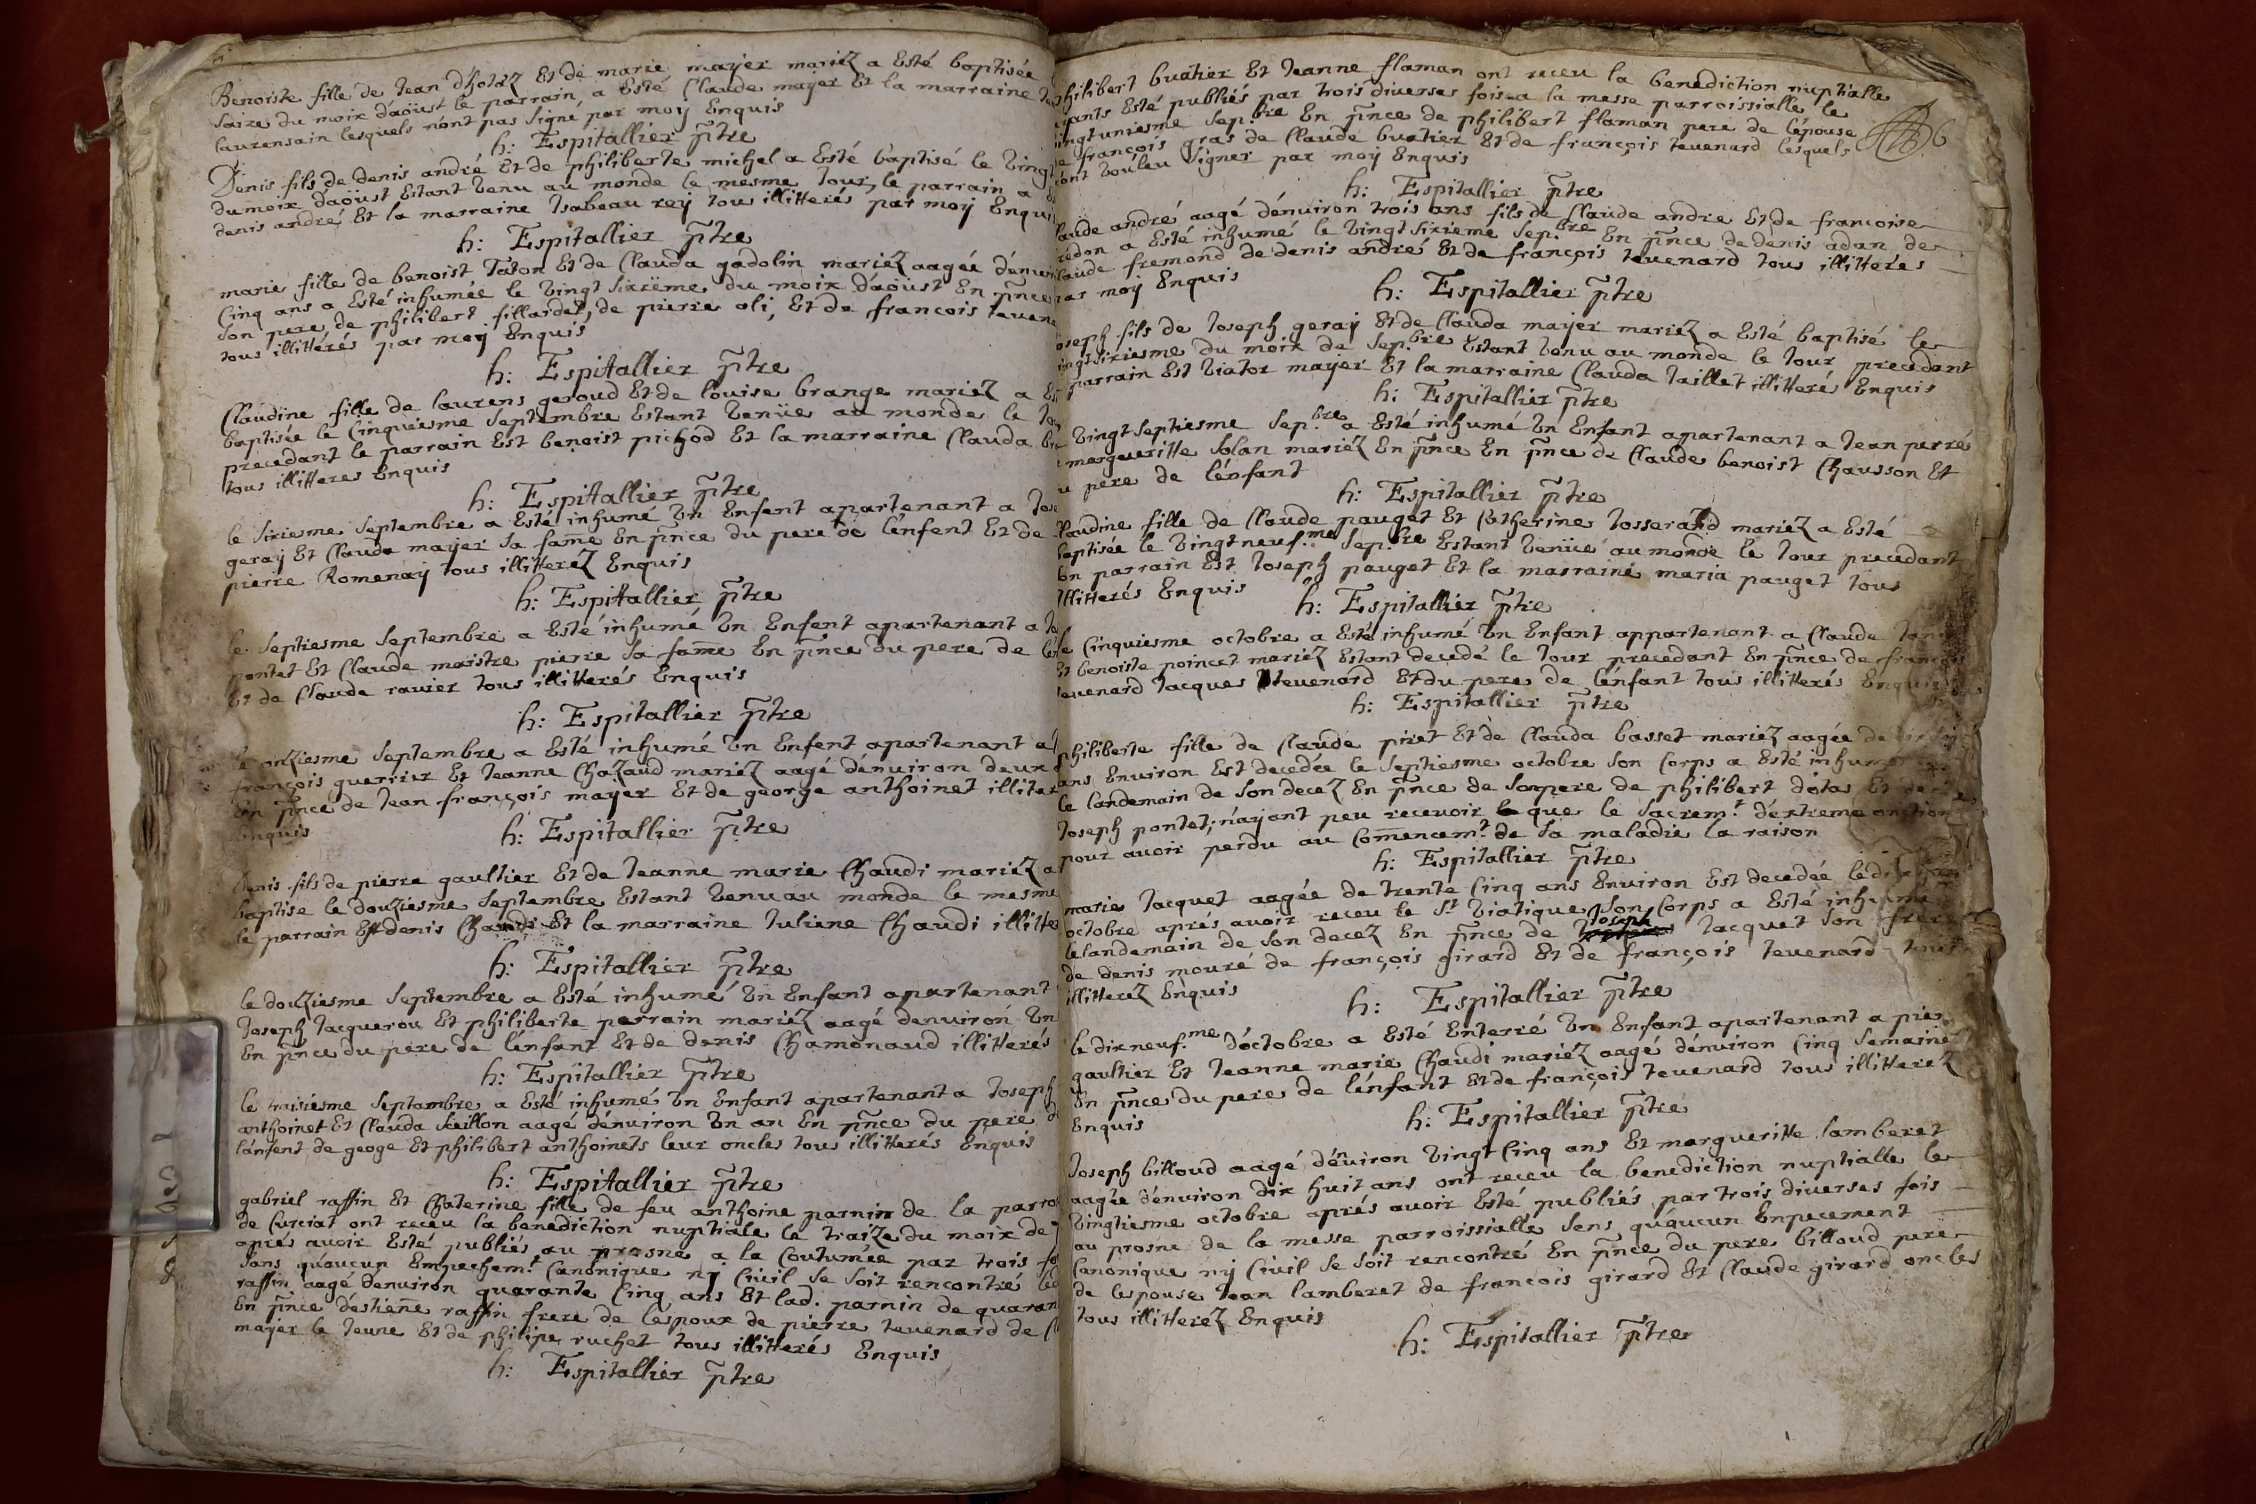 Benoiste fille de Jean dhotaz Et de marie mayer mariéz a Esté baptisée
Saize du moix daoust le parrain a Esté Claude mayer Et la marraine
laurensain lesquels n'ont pas Signé par moy Enquis
h: Espitallier ptre
Denis fils de denis andré Et de philiberte michel a Esté baptisé le Vingt
du moix daoust Estant Venu au monde le mesme Jour, le parrain a
denis andré Et la marraine Isabeau rey tous illitterés par moy Enquis
h: Espitallier ptre
marie fille de benoist Taton Et de Clauda gadolin mariéz aagée dénviron
Cinq ans a Esté inhumée le Vingt Sixiéme du moix daoust En pnce
Son pere, de philibert fillardet, de pierre oli, Et de francois teuena
tous illitterés par moy Enquis
h: Espitallier ptre
Claudine fille de laurens geroud Et de louise brange mariéz a Es
baptisée le Cinquiesme Septembre Estant Venüe au monde le Jou
precedant le parrain Est benoist pichod Et la marraine Clauda
tous illitteres Enquis
h: Espitallier ptre
le Sixiesme Septembre a Esté inhumé Un Enfent apartenant a Jose
geray Et Clauda mayer Sa fame En pnce du pere de l'énfent Et de
pierre Romenay tous illitteréz Enquis
h: Espitallier ptre
le Septiesme Septembre a Esté inhumé Un Enfent apartenant a Jo
pontet Et Claude maistre pierre Sa fame En pnce du pere de
Et de Claude ravier tous illitterés Enquis
h: Espitallier ptre
le onziesme Septembre a Esté inhumé Un Enfent apartenant a
françois guerrier Et Jeanne Chazaud mariéz aagé dénviron deux
En pnce de Jean françois mayer Et de george anthoinet illiter
Enquis
h: Espitallier ptre
Denis fils de pierre gaultier Et de Jeanne marie Chaudi mariéz a
baptisé le douziesme Septembre Estant Venu au monde le mesme
le parrain Est denis Chaudi Et la marraine Juliene Chaudi illitte
h: Espitallier ptre
le douziesme Septembre a Esté inhumé Un Enfant apartenant
Joseph Jacquerou Et philiberte perrain mariéz aagé denviron Un
En pnce du pere de l'enfant Et de denis Chamonaud illitterés
h: Espitallier ptre
le traisiesme Septembre a Esté inhumé Un Enfant apartenant a Joseph
anthoinet Et Clauda Seillon aagé dénviron Un an En pnce du pere d
l'énfent, de geoge Et philibert anthoinets leur oncles tous illitterés Enquis
h: Espitallier ptre
gabriel raffin Et Chaterine fille de feu anthoine parnin de la parro
de Curciat ont receu la benediction nuptiale le traize du moix de
aprés avoir Esté publiés au prosne a la Coutumée par trois fo
Sans qu'aucun Empechemt Canonique ny Civil se Soit rencontré
raffin aagé denviron quarante Cinq ans Et lad. parnin de quaran
En pnce déstiene raffin frere de l'espoux de pierre teuenard de
mayer le Jeune Et de philipe ruchet tous illitterés Enquis
h: Espitallier ptre
philibert buatier Et Jeanne flaman ont receu la benediction nuptialle
ayants Esté publiés par trois diverses fois a la messe parroissialle le
vingtuniesme Sep.bre En pnce de philibert flaman pere de lépouse
de françois gras de Claude buatier Et de françois teuenard lesquels
n'ont Vouleu Signer par moy Enquis
6
h: Espitallier ptre
Claude andré aagé dénviron trois ans fils de Claude andre Et de francoise
redon a Esté inhumé le Vingt Sixieme Sep.bre En pnce de denis adan de
Claude fremond de denis andré Et de françois teuenard tous illitteres
par moy Enquis
h: Espitallier ptre
Joseph fils de Joseph geray Et de Clauda mayer mariéz a Esté baptisé le
vingt Sixiesme du moix de Sep.bre Estant Venu au monde le Jour precedant
parrain Est Viator mayer Et la marraine Clauda taillet illitteré Enquis
h: Espitallier ptre
Vingt Septiesme Sep.bre a Esté inhumé Un Enfant apartenant a Jean perré
margueritte Solan mariéz En pnce En pnce de Claude benoist Chausson Et
du pere de l'énfant
h: Espitallier ptre
Claudine fille de Claude pauget Et Catherine Josserand mariéz a Esté
baptisée le Vingt neuf.me Sep.bre Estant Venüe au monde le Jour precedant
Son parrain Est Joseph pauget Et la marraine maria pauget tous
Illitterés Enquis
h: Espitallier ptre
le Cinquiesme octobre a Esté inhumé Un Enfant appartenant a Claude
Et benoiste poincet mariéz Estant decedé le Jour precedant En pnce de françois
teuenard Jacques teuenard Et du pere de l'énfant tous illitterés Enquis
h: Espitallier ptre
philiberte fille de Claude piret Et de Clauda basset mariéz aagée de
ans Environ Est decedée le Septiesme octobre Son Corps a Esté inhumé
le landemain de Son decez En pnce de Son pere de philibert dótas Et de
Joseph pontet, n'ayant peu recevoir que le Sacrem.t d'extreme onction
pour avoir perdu au Comencem.t de Sa maladie la raison
h: Espitallier ptre
marie Jacquet aagée de trente Cinq ans Environ Est decedée le
octobre aprés avoir receu le S.t Viatique, Son Corps a Esté inhumé
le landemain de Son decez En pnce de Joseph Jacquet Son frere
de denis mouré de françois girard Et de françois teuenard tous
illitteréz Enquis
h: Espitallier ptre
le dixneuf.me dóctobre a Esté Enterré Un Enfant apartenant a pier
gaultier Et Jeanne marie Chaudi mariéz aagé dénviron Cinq Semaine
En pnce du pere de l'énfant Et de françois teuenard tous illitteréz
Enquis
h: Espitallier ptre
Joseph billoud aagé dénviron Vingt Cinq ans Et margueritte lamberet
aagée dénviron dix huit ans ont receu la benediction nuptialle le
Vingtiesme octobre aprés avoir Esté publiés par trois diverses fois
au prosne de la messe parroissialle Sens qu'aucun Enpecement
Canonique ny Civil Se Soit rencontré En pnce du pere billoud pere
de lespouse Jean lamberet de francois girard Et Claude girard oncles
tous illitteréz Enquis
h: Espitallier ptre